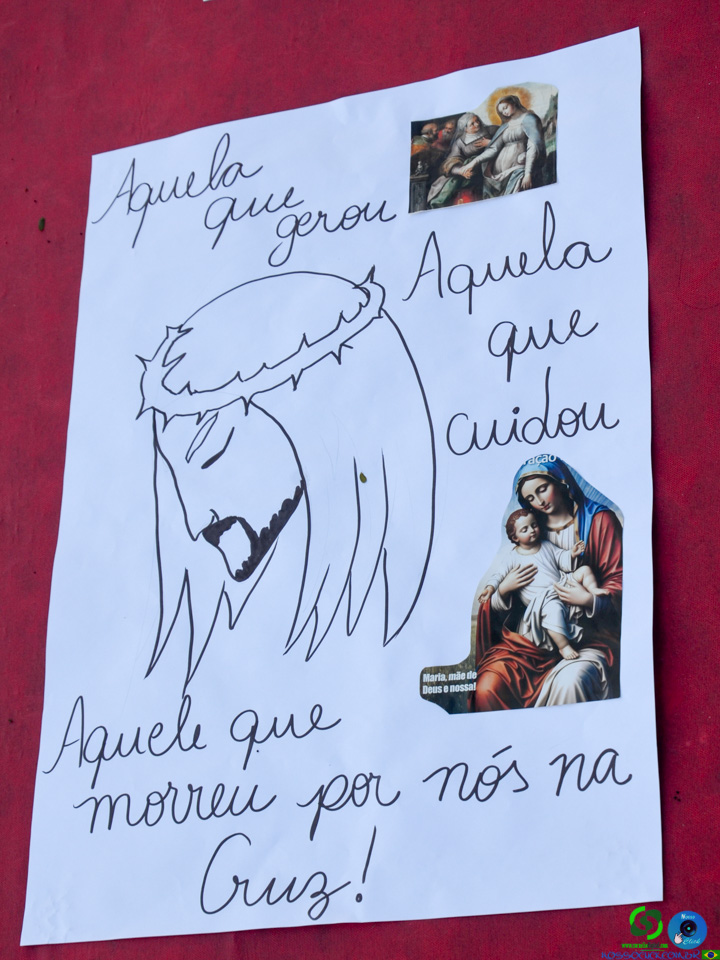 Aquela
que
gerou
Aquela
que
cuidou
ração
Maria, mãe de
Deus e nossa!
Aquele que
morreu por nós na
Cruz!
Nosso
Click